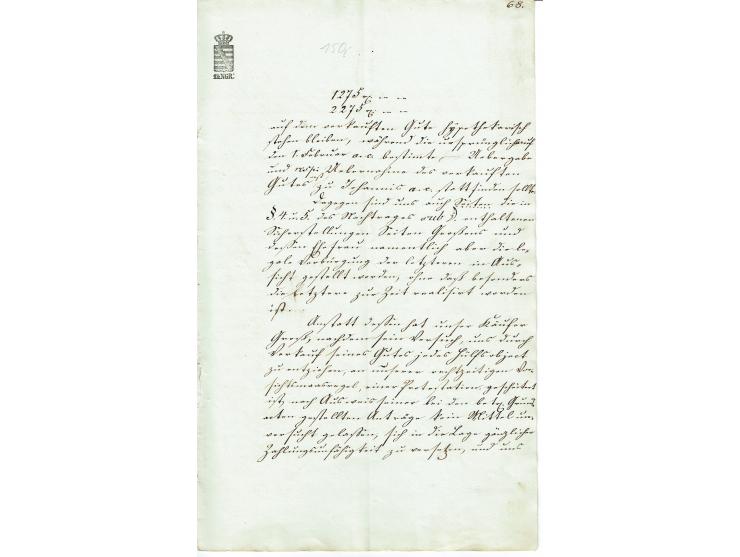 68.
15 Gr
1 NGR.
1275 rt — —
2275 rt — —
auf dem verkauften Gute hypothekarisch
stehen bleiben, während die ursprünglich auf
den 1. Februar a. c. bestimte, Uebergabe
und resp. Uebernahme des verkauften
Gutes zu Johannis a. c. stattfinden sollte.
Dagegen sind uns auch Seiten die in
§. 4. u. 5. des Nachtrages sub enthaltenen
Sicherstellungen Seiten Großens und
dessen Ehefrau namentlich aber die le-
gale Verbürgung der letzteren in Aus-
sicht gestellt worden, ohne daß besonders
die letztere zur Zeit realisirt worden
ist.
Anstatt dessen hat unser Käufer
Groß, nachdem sein Versuch, uns durch
Verkauf seines Gutes jedes Hilfsobject
zu entziehen, an unserer rechtzeitigen Vor-
sichtsmaasregel, einer Protestation, gescheitert
ist, nach Ausweis seiner bei den betr. Grund-
acten gestellten Anträge kein Mittel un-
versucht gelassen, sich in die Lage gänzlicher
Zahlungsunfähigkeit zu versetzen, und uns